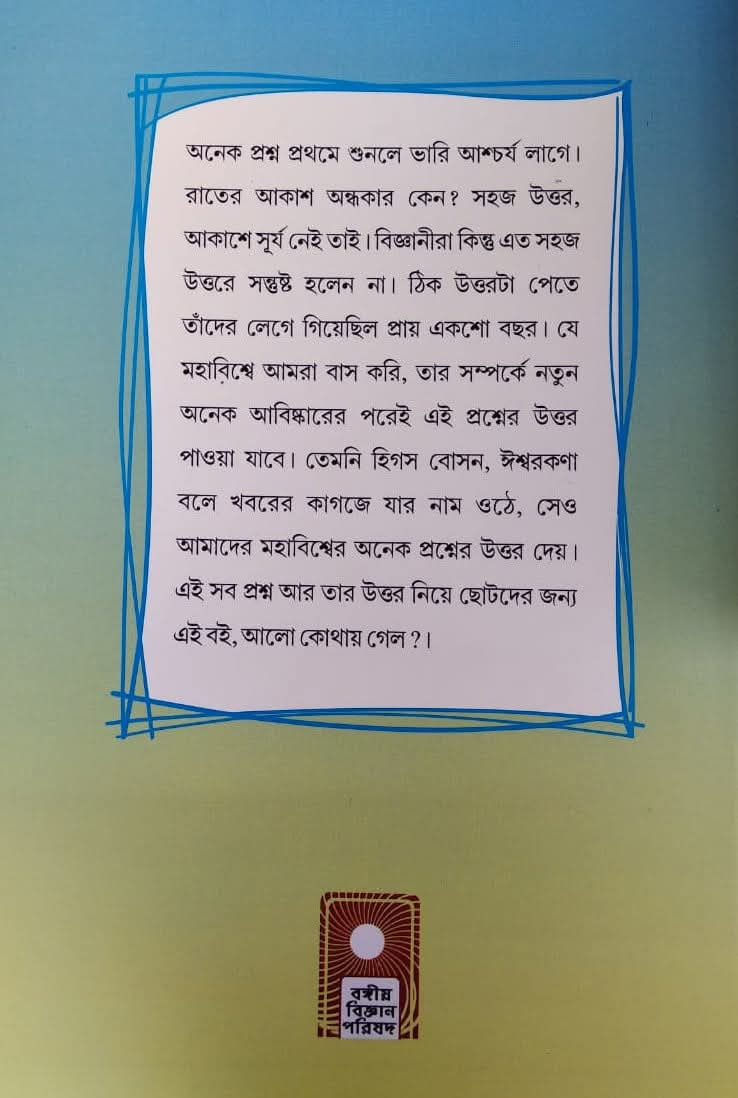 অনেক প্রশ্ন প্রথমে শুনলে ভারি আশ্চর্য লাগে।
রাতের আকাশ অন্ধকার কেন? সহজ উত্তর,
আকাশে সূর্য নেই তাই। বিজ্ঞানীরা কিন্তু এত সহজ
উত্তরে সন্তুষ্ট হলেন না। ঠিক উত্তরটা পেতে
তাঁদের লেগে গিয়েছিল প্রায় একশো বছর। যে
মহাবিশ্বে আমরা বাস করি, তার সম্পর্কে নতুন
অনেক আবিষ্কারের পরেই এই প্রশ্নের উত্তর
পাওয়া যাবে। তেমনি হিগস বোসন, ঈশ্বরকণা
বলে খবরের কাগজে যার নাম ওঠে, সেও
আমাদের মহাবিশ্বের অনেক প্রশ্নের উত্তর দেয়।
এই সব প্রশ্ন আর তার উত্তর নিয়ে ছোটদের জন্য
এই বই, আলো কোথায় গেল?।
বঙ্গীয়
বিজ্ঞান
পরিষদ